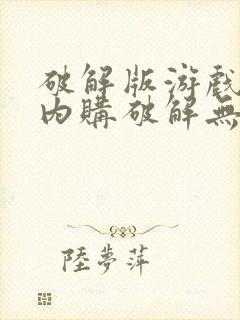 破解版游戲
內購破解無
陸夢萍